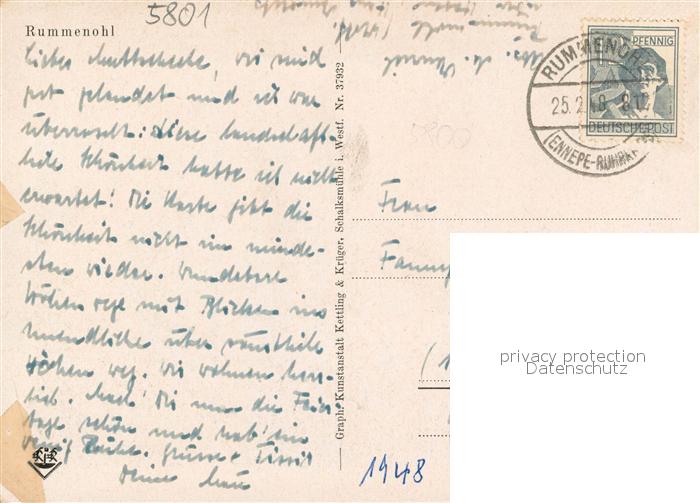 5801
Rummenohl
Liebes Muttschele, wir sind
gut gelandet und ich war
überrascht: diese landschaft-
liche Schönheit hatte ich nicht
erwartet! Die Karte gibt die
Schönheit nicht im minde-
sten wieder. Wunderbare
Höhenwege mit Blicken ins
unendliche über
Höhen weg. Wir wohnen herr-
lich. Mach' Dir nun die Feier-
tage schön und hab' ein
wenig Ruhe. Grüsse +
Deine
Graph. Kunstanstalt Kettling & Krüger, Schalksmühle i. Westf. Nr. 37932
PFENNIG
DEUTSCHE POST
RUMMENOHL
25.2.48. 8
(ENNEPE-RUHRKR
5800
Frau
Fanny
1948
privacy protection
Datenschutz